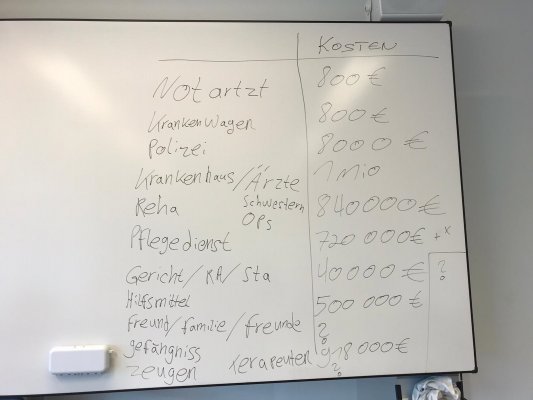 KOSTEN
Notartzt 800 €
Krankenwagen 800 €
Polizei 8000 €
Krankenhaus/Ärzte 1 Mio
Reha Schwestern OPs 840000 €
Pflegedienst 720 000 € + x
Gericht/RA/Sta 40000 € ?
Hilfsmittel 500 000 €
Freund/familie/freunde ?
gefängniss 918000 €
Zeugen Terapeuten ?